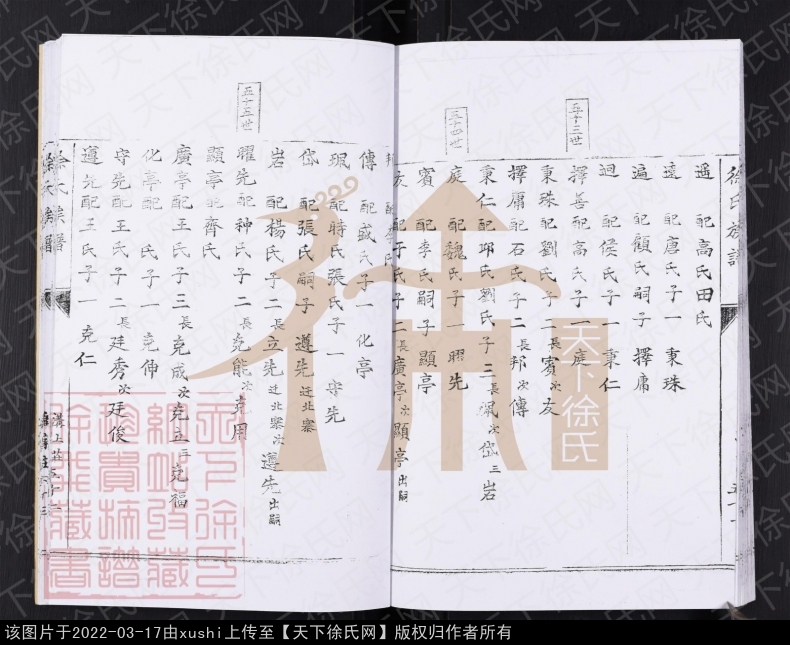 徐氏族譜
遥 配高氏田氏
遠 配唐氏子一 東珠
遍 配顧氏嗣子 擇庸
迴 配侯氏子一 秉仁
五十三世
擇善配高氏子一 庭
秉珠配劉氏子二長賓次友
擇庸配石氏子二長邦次傳
秉仁配邱氏劉氏子三長 次岱三岩
五十四世
庭 配魏氏子一曜先
賓 配李氏嗣子 顯亭
友 配于氏子二長廣亭次顯亭出嗣
邦 配李氏
傳 配盛氏子一 化亭
珮 配時氏張氏子一 守先
岱 配張氏嗣子 遵先 迁北寨
岩 配楊氏子二長立先迁北寨次遵先出嗣
五十五世
曜先配神氏子二長堯能次堯用
顯亭配齊氏
廣亭配王氏子三長克成次克立三克福
化亭配 氏子一 克伸
守先配王氏子二長廷秀次廷俊
遵先配王氏子一 克仁
徐氏族譜
天下徐氏
天下徐氏
天下徐氏网
该图片于2022-03-17由xushi上传至【天下徐氏网】版权归作者所有